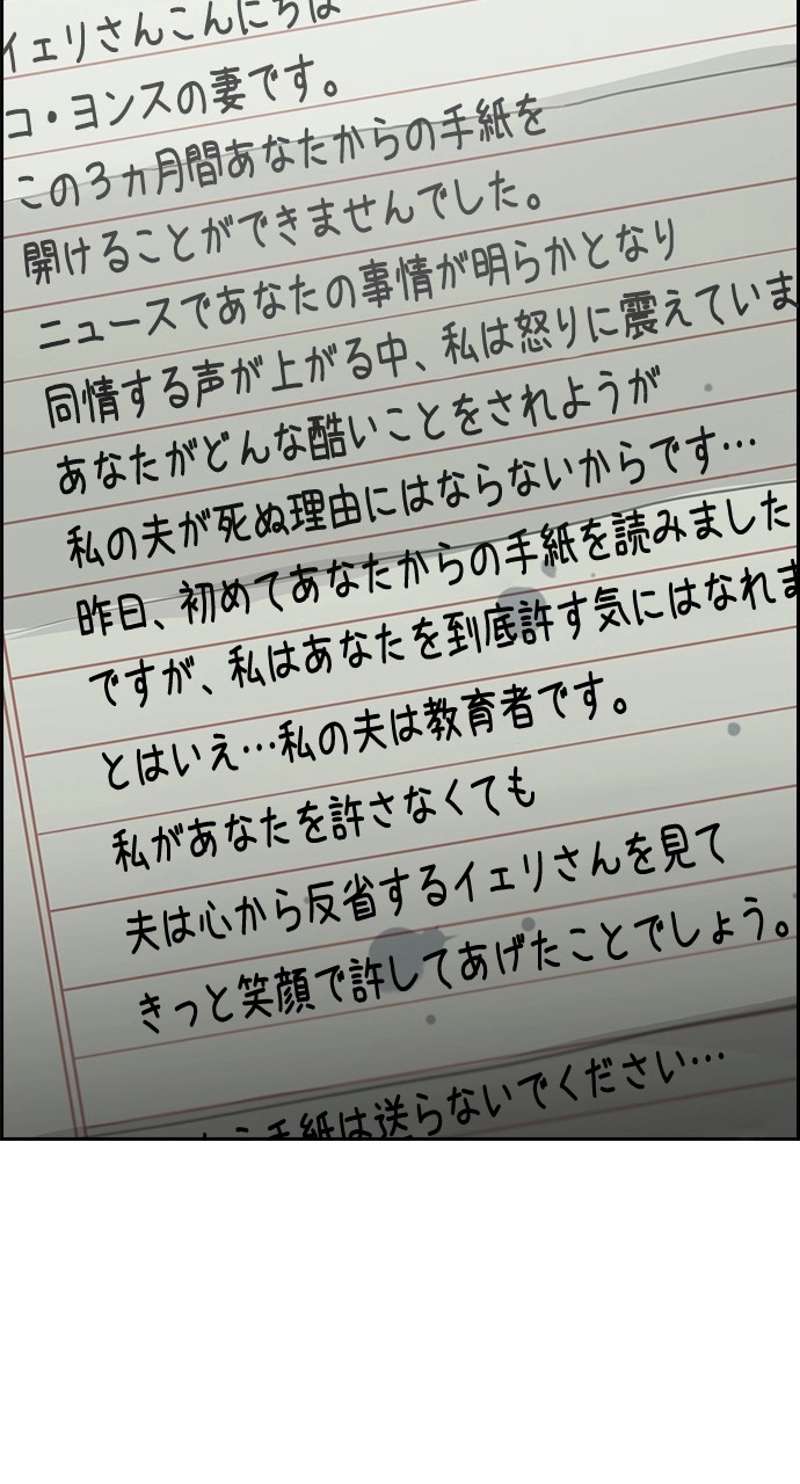 イェリさんこんにちは
コ・ヨンスの妻です。
この3ヵ月間あなたからの手紙を
開けることができませんでした。
ニュースであなたの事情が明らかとなり
同情する声が上がる中、私は怒りに震えていま
あなたがどんな酷いことをされようが
私の夫が死ぬ理由にはならないからです…
昨日、初めてあなたからの手紙を読みました
ですが、私はあなたを到底許す気にはなれま
とはいえ…私の夫は教育者です。
私があなたを許さなくても
夫は心から反省するイェリさんを見て
きっと笑顔で許してあげたことでしょう。
手紙は送らないでください…